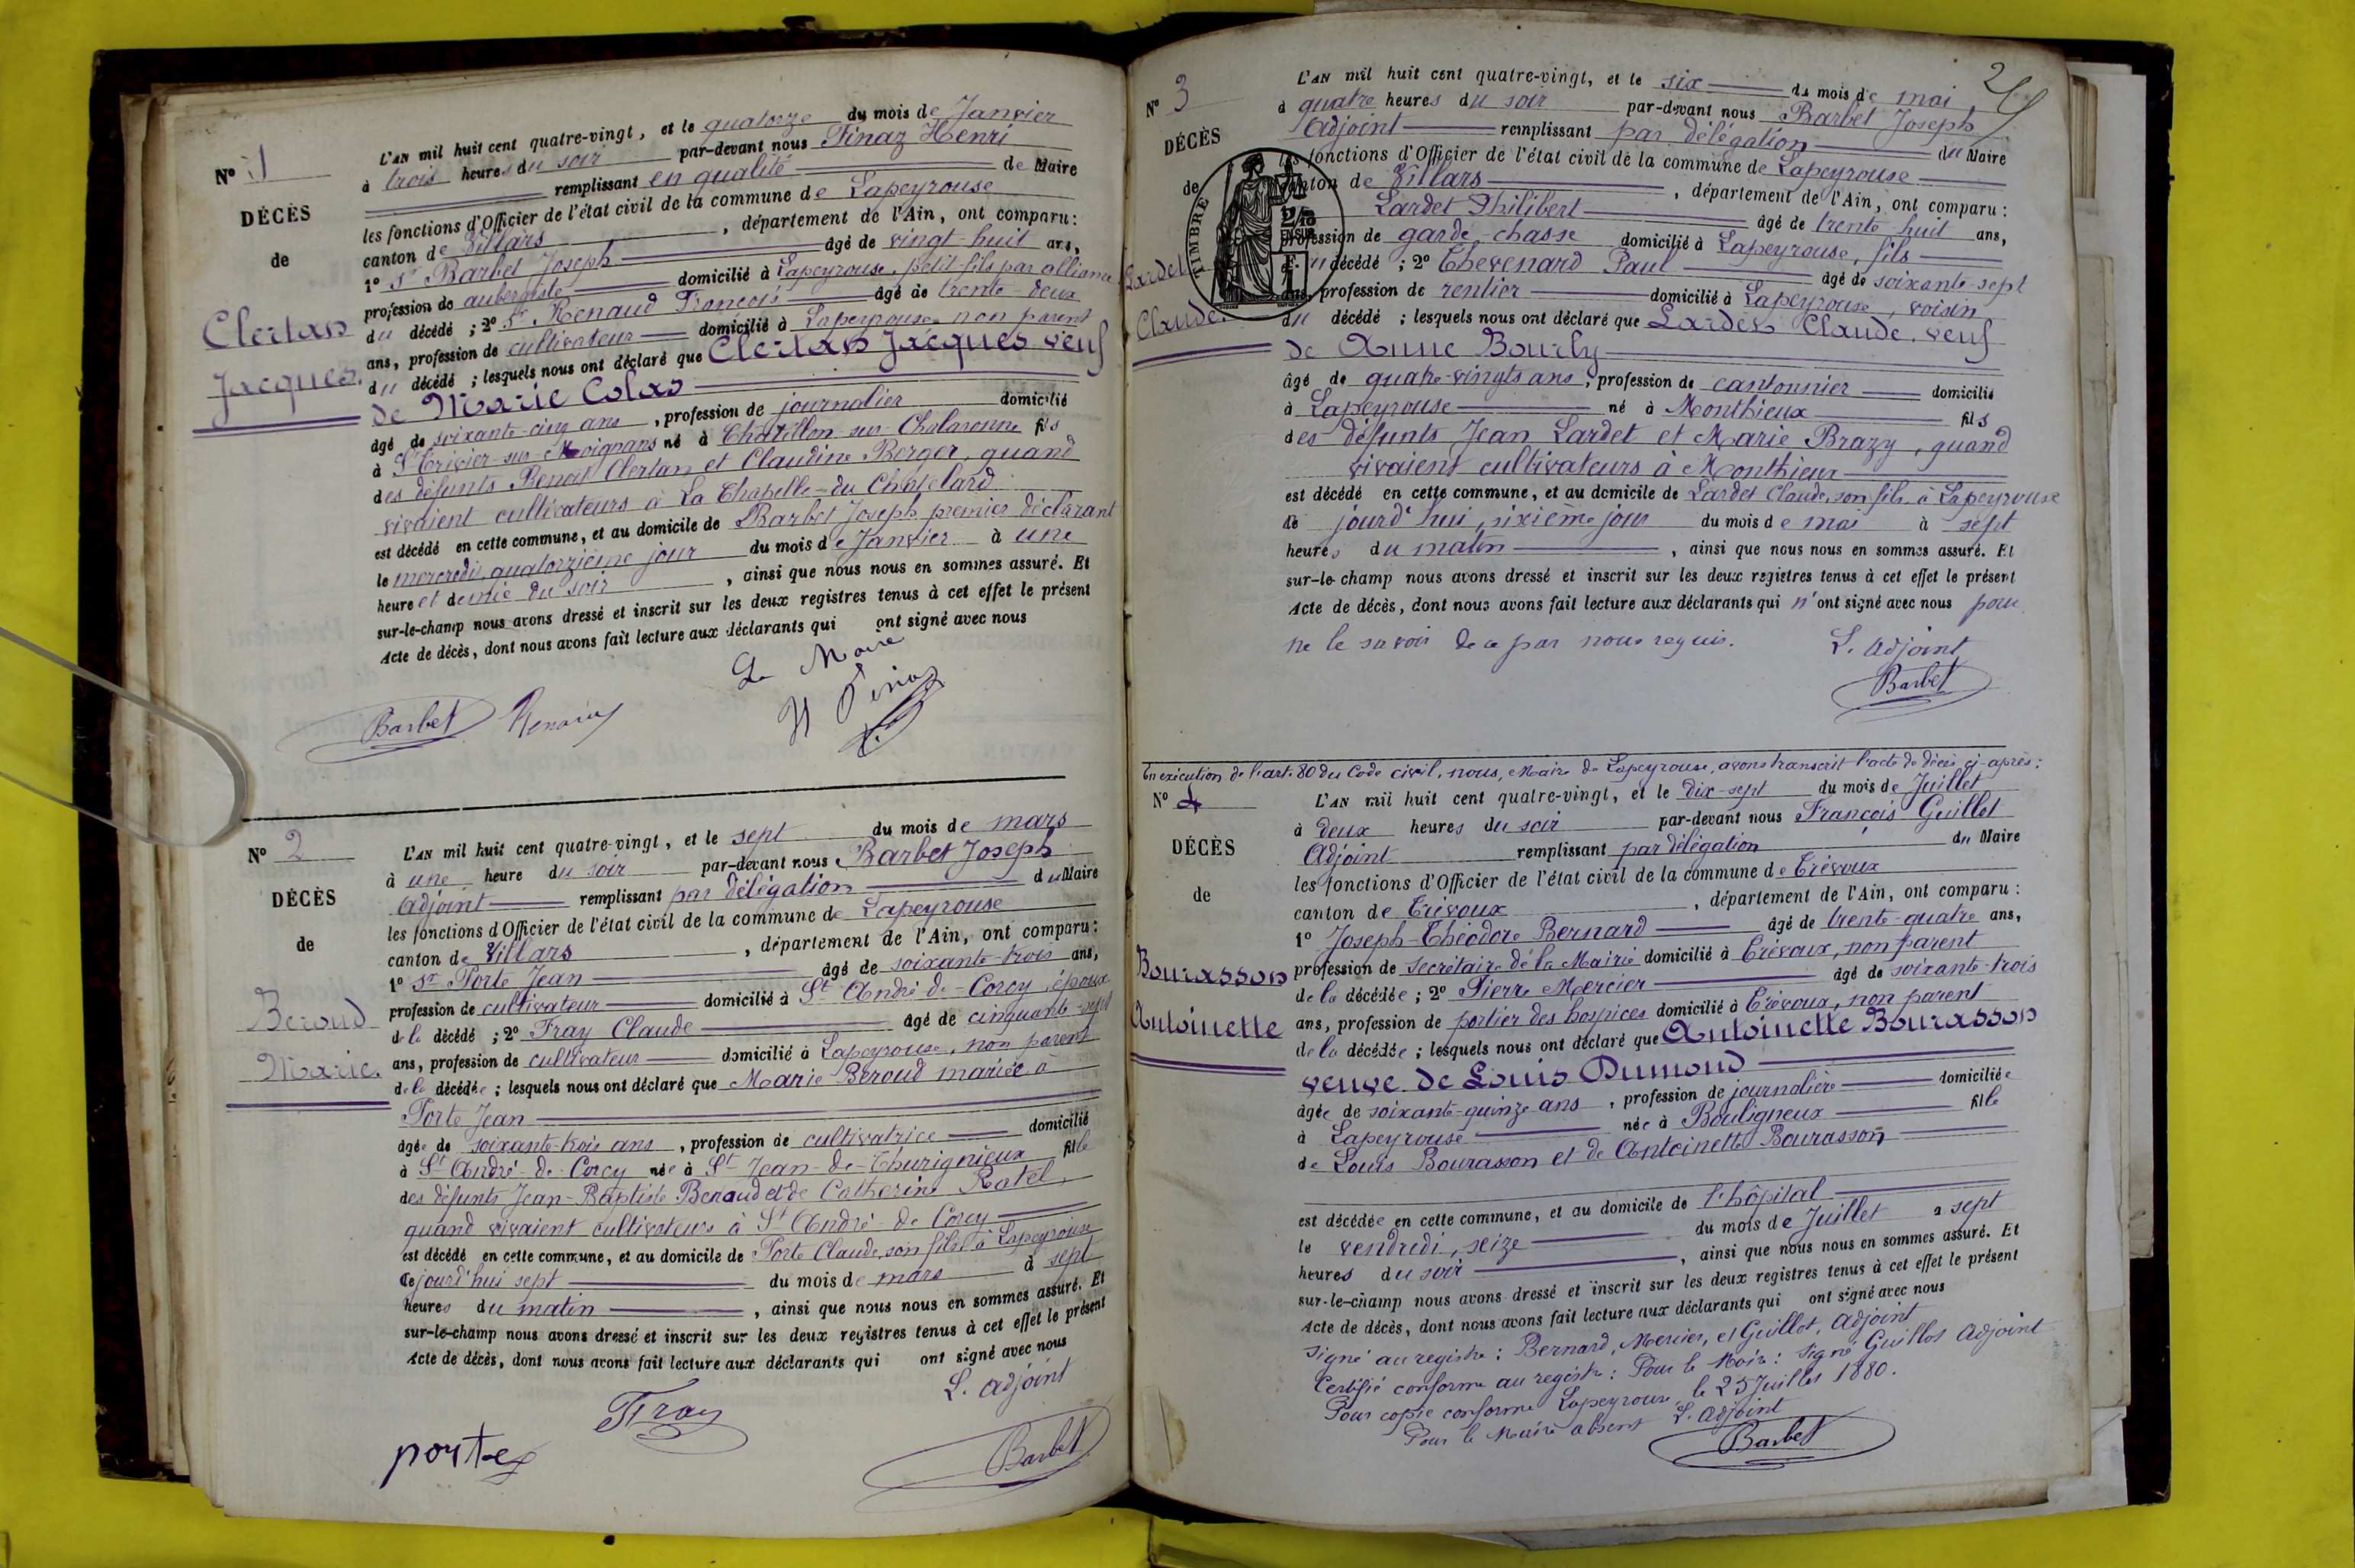 N° 1
DÉCÈS
de
Clertan
Jacques.
L'AN mil huit cent quatre-vingt, et le quatorze du mois de Janvier
à trois heures du soir par-devant nous Finaz Henri
remplissant en qualité de Maire
les fonctions d'Officier de l'état civil de la commune de Lapeyrouse
canton de Villars, département de l'Ain, ont comparu:
1° Sr Barbet Joseph âgé de vingt-huit ans,
profession de aubergiste domicilié à Lapeyrouse, petit-fils par alliance
du décédé ; 2° Sr Renaud François âgé de trente-deux
ans, profession de cultivateur domicilié à Lapeyrouse non parent
du décédé ; lesquels nous ont déclaré que Clertan Jacques veuf
de Marie Colas
âgé de soixante-cinq ans, profession de journalier domicilié
à St Trivier-sur-Moignans né à Chatillon-sur-Chalaronne fils
des défunts Benoit Clertan et Claudine Berger, quand
vivaient cultivateurs à La Chapelle-du-Chatelard
est décédé en cette commune, et au domicile de Barbet Joseph premier déclarant
le mercredi, quatorzième jour du mois de Janvier à une
heure et demie du soir, ainsi que nous nous en sommes assuré. Et
sur-le-champ nous avons dressé et inscrit sur les deux registres tenus à cet effet le présent
Acte de décès, dont nous avons fait lecture aux déclarants qui ont signé avec nous
Le Maire
Barbet Renaud H Finaz
N° 2
DÉCÈS
de
Beroud
Marie.
L'AN mil huit cent quatre-vingt, et le sept du mois de mars
à une heure du soir par-devant nous Barbet Joseph
Adjoint remplissant par délégation du Maire
les fonctions d'Officier de l'état civil de la commune de Lapeyrouse
canton de Villars, département de l'Ain, ont comparu:
1° Sr Porte Jean âgé de soixante-trois ans,
profession de cultivateur domicilié à St André-de-Corcy, époux
de la décédé ; 2° Fray Claude âgé de cinquante-sept
ans, profession de cultivateur domicilié à Lapeyrouse, non parent
de la décédée ; lesquels nous ont déclaré que Marie Béroud mariée à
Porte Jean
âgée de soixante-trois ans, profession de cultivatrice domicilié
à St André-de-Corcy née à St Jean-de-Thurigneux fille
des défunts Jean-Baptiste Beraud et de Catherine Ratel,
quand vivaient cultivateurs à St André-de-Corcy
est décédé en cette commune, et au domicile de Porte Claude, son fils à Lapeyrouse
ce jourd'hui sept du mois de mars à sept
heures du matin, ainsi que nous nous en sommes assuré. Et
sur-le-champ nous avons dressé et inscrit sur les deux registres tenus à cet effet le présent
Acte de décès, dont nous avons fait lecture aux déclarants qui ont signé avec nous
L'adjoint
Fray
porte Barbet
N° 3
DÉCÈS
de
Lardet
Claude.
TIMBRE
L'AN mil huit cent quatre-vingt, et le six du mois de mai
à quatre heures du soir par-devant nous Barbet Joseph
Adjoint remplissant par délégation du Maire
les fonctions d'Officier de l'état civil de la commune de Lapeyrouse
canton de Villars, département de l'Ain, ont comparu:
Lardet Philibert âgé de trente-huit ans,
profession de garde-chasse domicilié à Lapeyrouse, fils
du décédé ; 2° Thevenard Paul âgé de soixante-sept
ans, profession de rentier domicilié à Lapeyrouse, voisin
du décédé ; lesquels nous ont déclaré que Lardet Claude, veuf
de Anne Bourly
âgé de quatre-vingts ans, profession de cantonnier domicilié
à Lapeyrouse né à Monthieux fils
des défunts Jean Lardet et Marie Brazy, quand
vivaient cultivateurs à Monthieux
est décédé en cette commune, et au domicile de Lardet Claude, son fils à Lapeyrouse
ce jourd'hui, sixième jour du mois de mai à sept
heures du matin, ainsi que nous nous en sommes assuré. Et
sur-le-champ nous avons dressé et inscrit sur les deux registres tenus à cet effet le présent
Acte de décès, dont nous avons fait lecture aux déclarants qui n'ont signé avec nous pour
ne le savoir de ce par nous requis. L'adjoint
Barbet
En exécution de l'art. 80 du Code civil, nous, Maire de Lapeyrouse, avons transcrit l'acte de décès ci-après:
N° 4
DÉCÈS
de
Bourasson
Antoinette
L'AN mil huit cent quatre-vingt, et le dix-sept du mois de Juillet
à deux heures du soir par-devant nous François Guillot
Adjoint remplissant par délégation du Maire
les fonctions d'Officier de l'état civil de la commune de Trévoux
canton de Trévoux, département de l'Ain, ont comparu:
1° Joseph-Théodore Bernard âgé de trente-quatre ans,
profession de secrétaire de la Mairie domicilié à Trévoux, non parent
de la décédée ; 2° Pierre Mercier âgé de soixante-trois
ans, profession de portier des hospices domicilié à Trévoux, non parent
de la décédée ; lesquels nous ont déclaré que Antoinette Bourasson
veuve de Louis Dumond
âgée de soixante-quinze ans, profession de journalière domiciliée
à Lapeyrouse née à Bouligneux fille
de Louis Bourasson et de Antoinette Bourasson
est décédée en cette commune, et au domicile de l'hôpital
le vendredi, seize du mois de Juillet à sept
heures du soir, ainsi que nous nous en sommes assuré. Et
sur-le-champ nous avons dressé et inscrit sur les deux registres tenus à cet effet le présent
Acte de décès, dont nous avons fait lecture aux déclarants qui ont signé avec nous
Signé au registre: Bernard, Mercier, et Guillot, Adjoint
Certifié conforme au registre: Pour le Maire: Signé Guillot Adjoint
Pour copie conforme Lapeyrouse, le 25 Juillet 1880.
Pour le Maire absent L'adjoint
Barbet